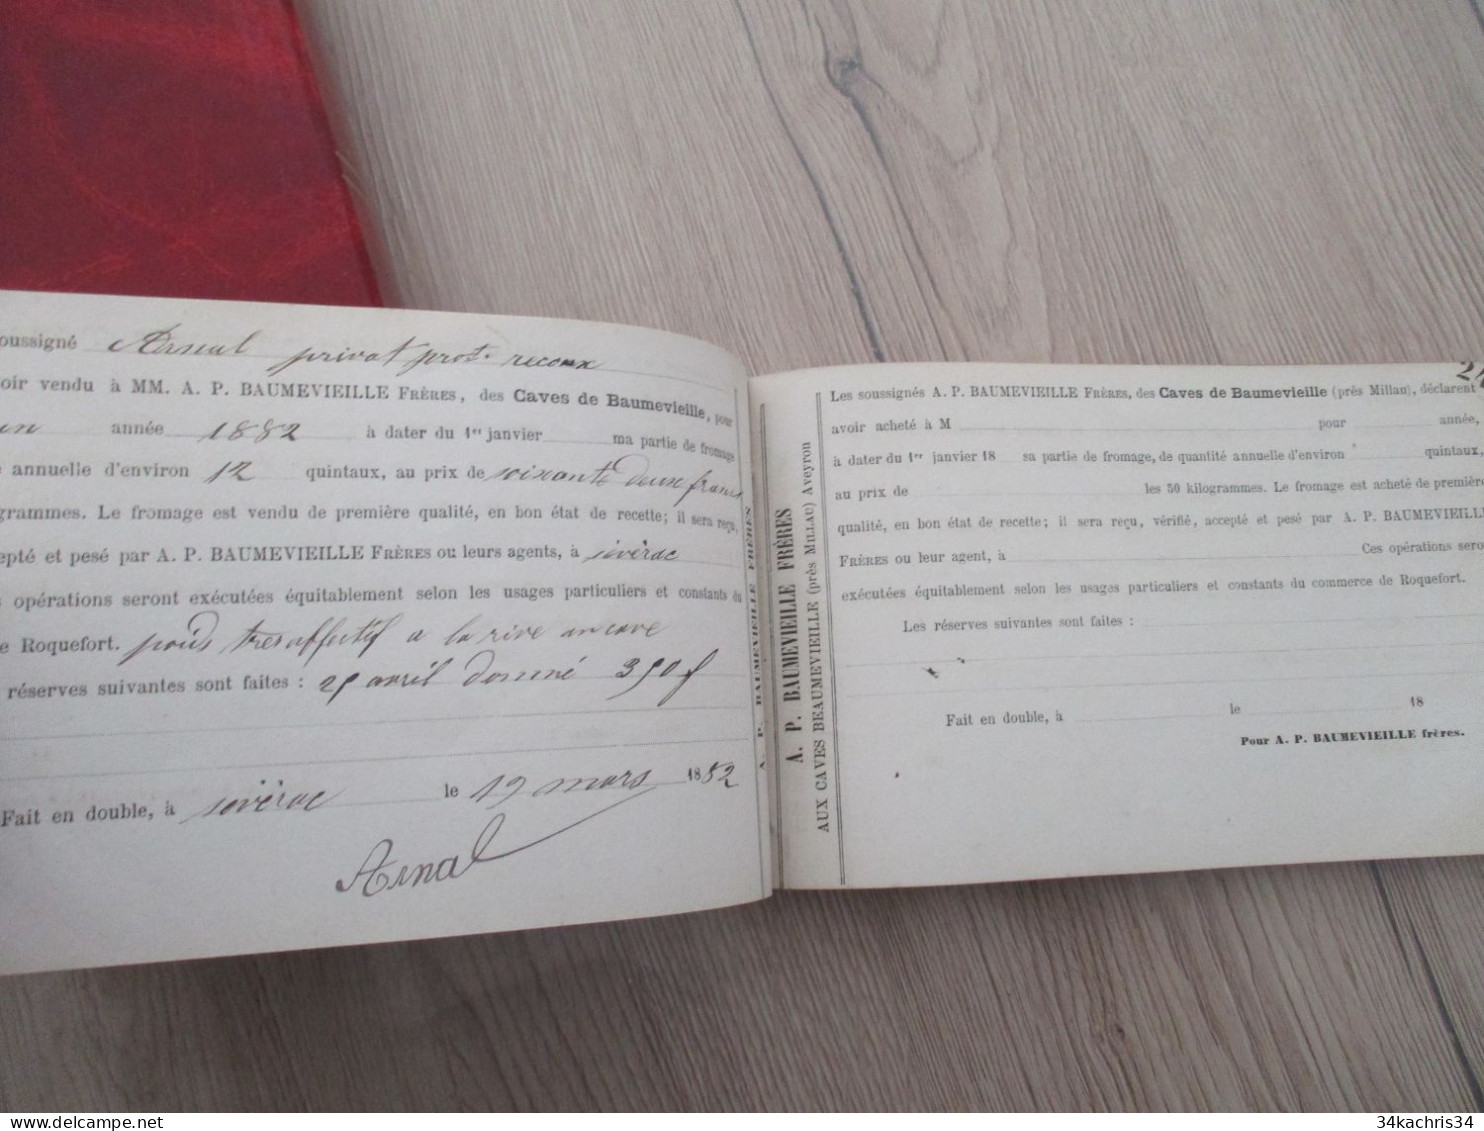 oussigné Arnal privat prop. recoux
oir vendu à MM. A. P. BAUMEVIEILLE FRÈRES, des Caves de Baumevieille, pour
un année 1882 à dater du 1er janvier ma partie de fromage
annuelle d'environ 12 quintaux, au prix de soixante deux francs
grammes. Le fromage est vendu de première qualité, en bon état de recette; il sera reçu,
epté et pesé par A. P. BAUMEVIEILLE FRÈRES ou leurs agents, à sévèrac
s opérations seront exécutées équitablement selon les usages particuliers et constants du
e Roquefort. poids
réserves suivantes sont faites : 25 avril donné 350 f
Fait en double, à sévèrac le 19 mars 1882
Arnal
A. P. BAUMEVIEILLE FRÈRES
A. P. BAUMEVIEILLE FRÈRES
A. P. BAUMEVIEILLE FRÈRES
AUX CAVES BEAUMEVIEILLE (près MILLAU) Aveyron
24
Les soussignés A. P. BAUMEVIEILLE FRÈRES, des Caves de Baumevieille (près Millau), déclarent
avoir acheté à M pour année,
à dater du 1er janvier 18 sa partie de fromage, de quantité annuelle d'environ quintaux,
au prix de les 50 kilogrammes. Le fromage est acheté de première
qualité, en bon état de recette; il sera reçu, vérifié, accepté et pesé par A. P. BAUMEVIEILLE
FRÈRES ou leur agent, à Ces opérations sero
exécutées équitablement selon les usages particuliers et constants du commerce de Roquefort.
Les réserves suivantes sont faites :
Fait en double, à le 18
Pour A. P. BAUMEVIEILLE frères.
34kachris34
delcampe.net